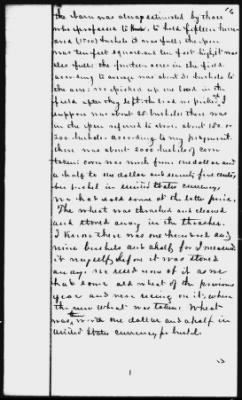 16
the barn was always estimated by those
who professed to know to hold fifteen hundred
and (1500) bushels it was full; the open
was ten feet square and ten feet high it was
also full; the fourteen acres in the field
according to average was about 30 bushels to
the acre; we picked up one load in the
field after they left the load we picked, I
suppose was about 25 bushels there was
in the open referred to above about 180 or
200 bushels. According to my judgement
there was about 2000 bushels of corn
taken; corn was worth from one dollar and
a half to one dollar and seventy five cents
per bushel in United States currency,
we had sold some at the latter price.
The wheat was thrashed and cleaned
and stored away in the
I know there was one hundred and
nine bushels and a half, for I measured
it myself, before it was stored
away. We used none of it as we
had some old wheat of the previous
year and were using on it, when
the new wheat was taken. Wheat
was, worth one dollar and a half in
United States currency, per bushel.